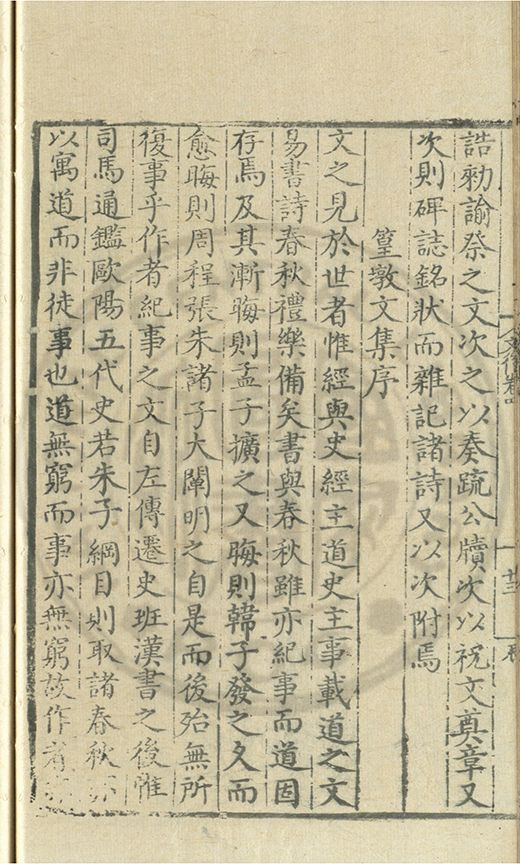 誥勑諭祭之文次之以奏疏公牘次以祝文奠章又
次則碑誌銘狀而雜記諸詩又以次附焉
篁墩文集序
文之見於世者惟經與史經主道史主事載道之文
易書詩春秋禮樂備矣書與春秋雖亦紀事而道因
存焉及其漸晦則孟子擴之又晦則韓子發之久而
愈晦則周程張朱諸子大闡明之自是而後殆無所
復事乎作者紀事之文自左傳遷史班漢書之後惟
司馬通鑑歐陽五代史若朱子綱目則取諸春秋亦
以寓道而非徒事也道無窮而事亦無窮故作者